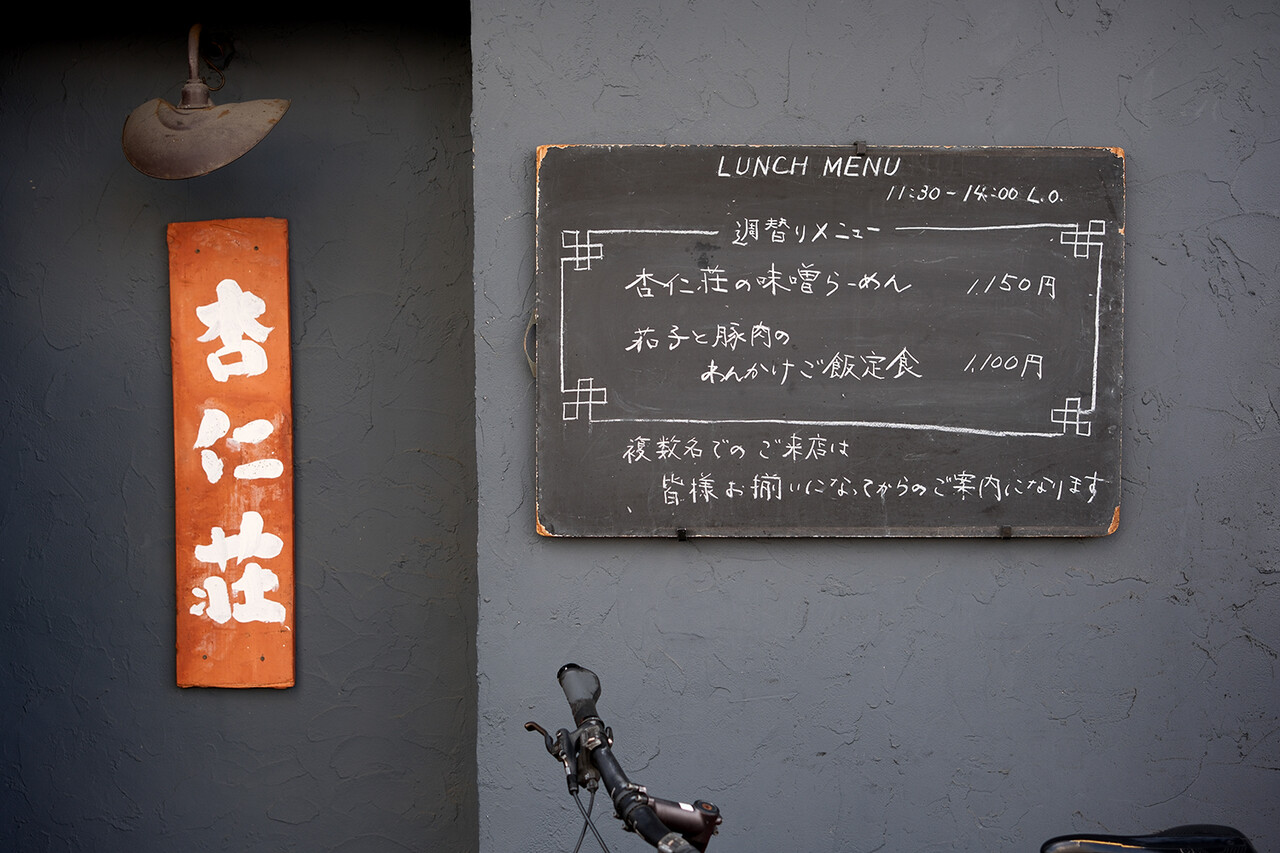 杏仁荘
LUNCH MENU
11:30-14:00 L.O.
週替りメニュー
杏仁荘の味噌らーめん 1,150円
茄子と豚肉の
あんかけご飯定食 1,100円
複数名でのご来店は
皆様お揃いになってからのご案内になります